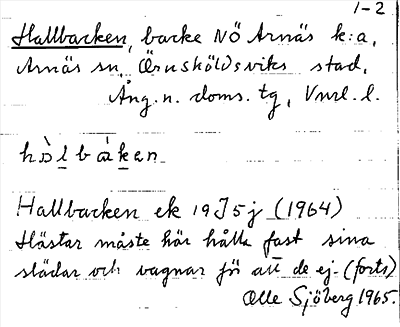 1-2
Hallbacken, backe NÖ Arnäs k:a,
Arnäs sn, Örnsköldsviks stad,
Ång. n. doms. tg, Vnrl. l.
Hallbacken ek 19J5j (1964)
Hästar måste här hålla fast sina
slädar och vagnar för att de ej (forts)
Olle Sjöberg 1965.